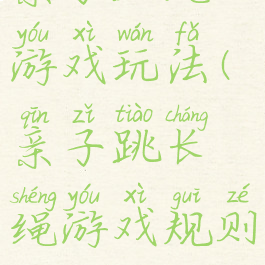 yóu xì wán fǎ
游戏玩法(
qīn zǐ tiào cháng
亲子跳长
shéng yóu xì guī zé
绳游戏规则